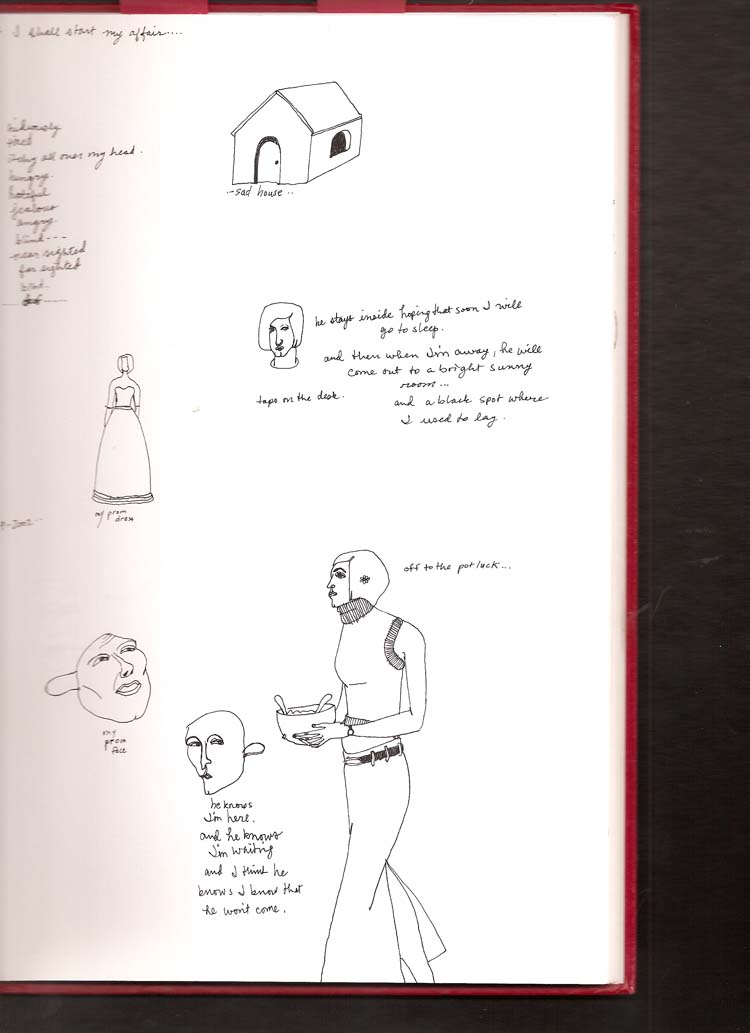 I shall start my affair....
hideously
tired
itchy all over my head.
hungry.
hateful
jealous
angry.
blind---
near sighted
far sighted
blind.
-sad house..
he stays inside hoping that soon I will
go to sleep.
and then when I'm away, he will
come out to a bright sunny
room...
taps on the desk.
and a black spot where
I used to lay.
my prom
dress
-2002--
off to the pot luck...
my
prom
face
he knows
I'm here.
and he knows
I'm waiting
and I think he
knows I know that
he won't come.